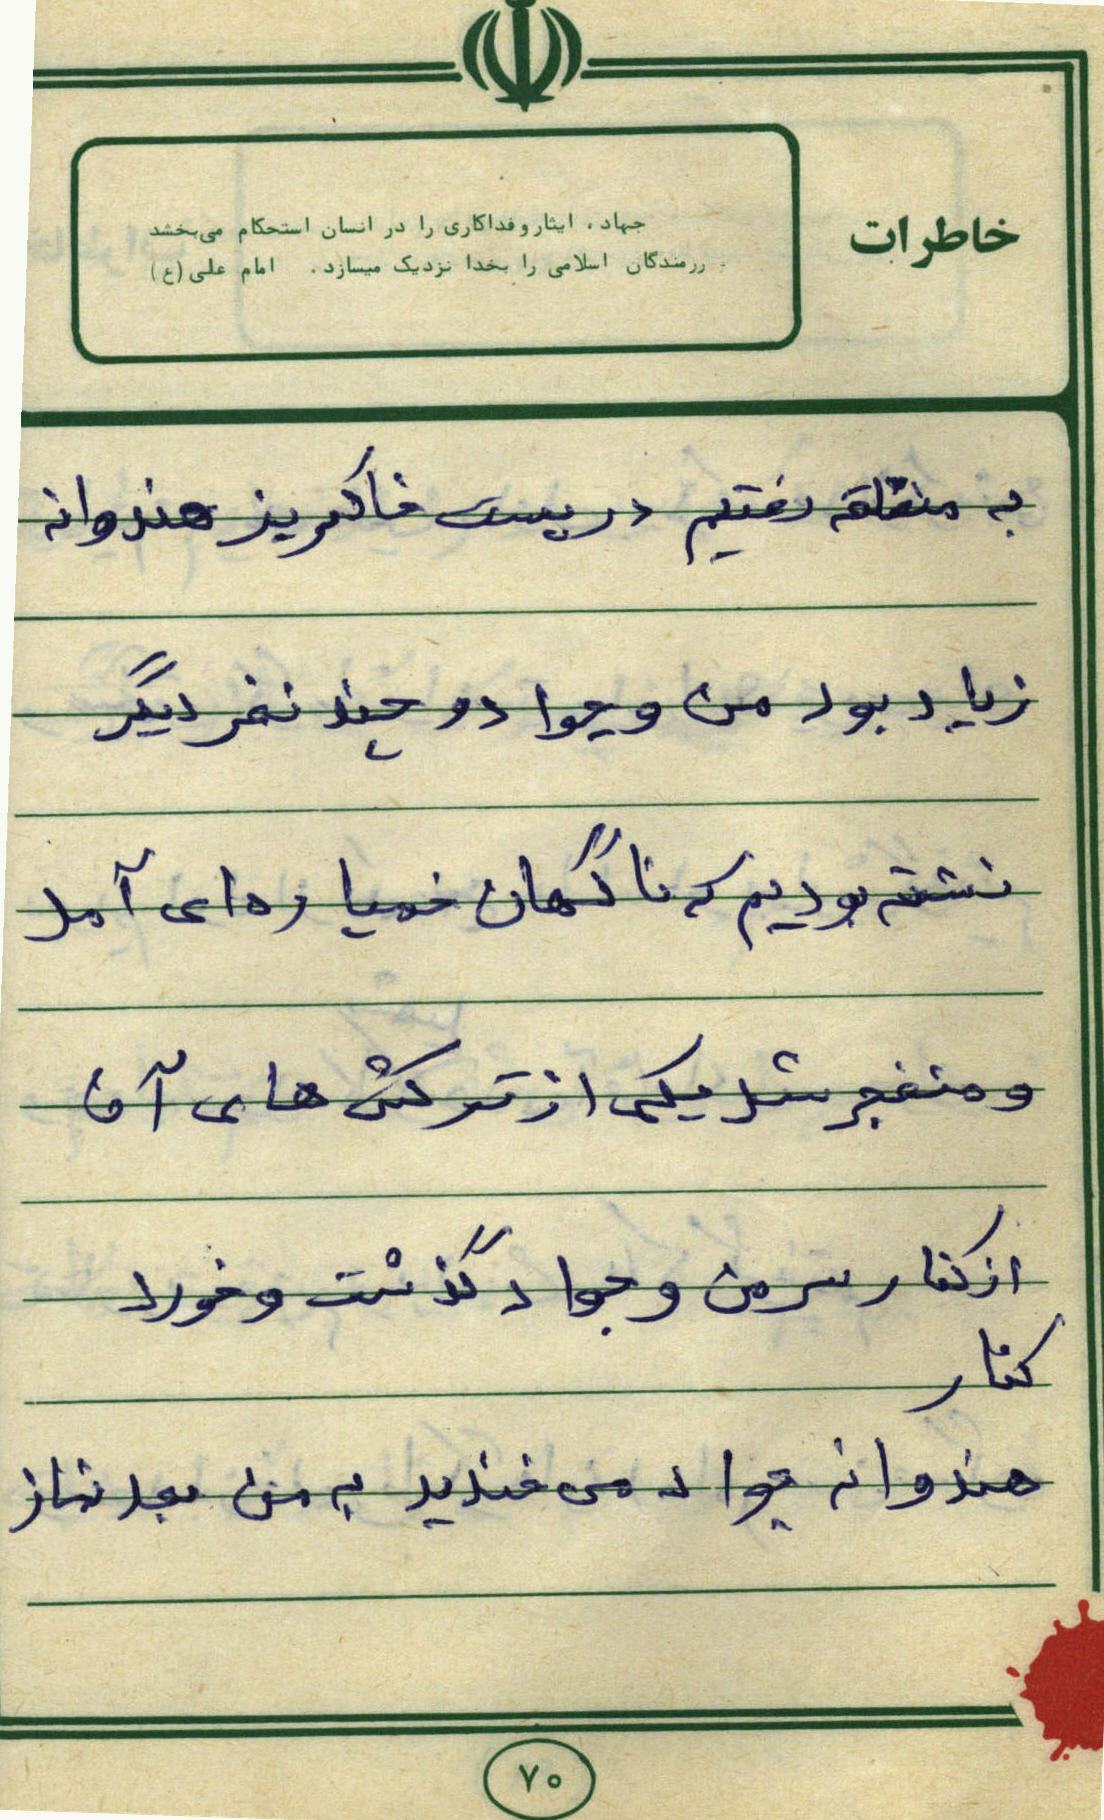 خاطرات
جهاد، ایثار و فداکاری را در انسان استحکام می‌بخشد
رزمندگان اسلامی را بخدا نزدیک میسازد. امام علی (ع)
به منطقه رفتیم در پست خاکریز هندوانه
زیاد بود من و جواد و چند نفر دیگر
نشسته بودیم که ناگهان خمپاره‌ای آمد
و منفجر شد یکی از ترکش های آن
از کنار سر من و جواد گذشت و خورد
کنار
هندوانه جواد می خندید به من بعد نماز
۷۰